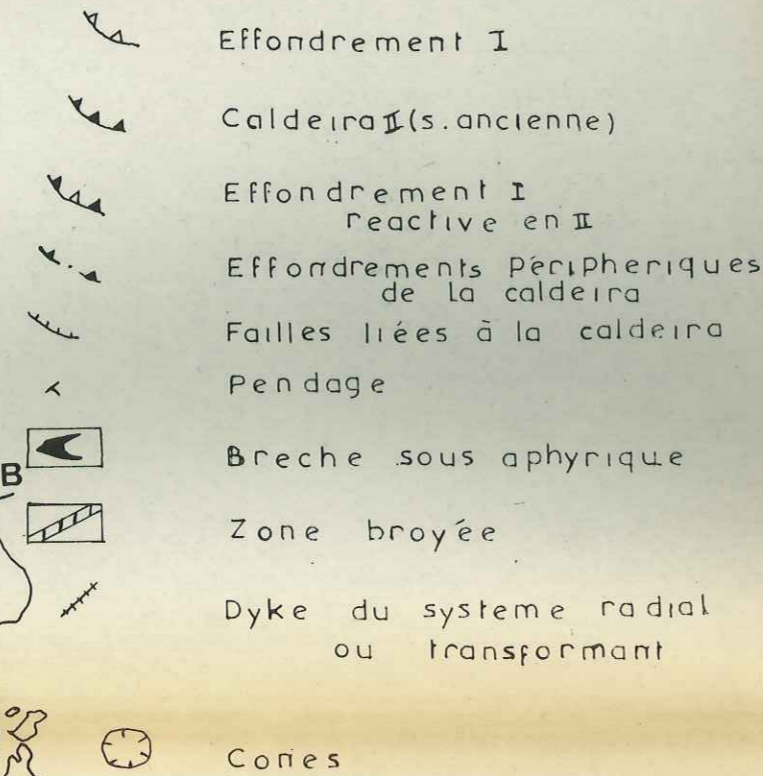 Effondrement I
Caldeira II (s.ancienne)
Effondrement I
reactive en II
Effondrements Péripheriques
de la caldeira
Failles liées à la caldeira
Pendage
B
Breche sous aphyrique
Zone broyée
Dyke du systeme radial
ou transformant
Cones